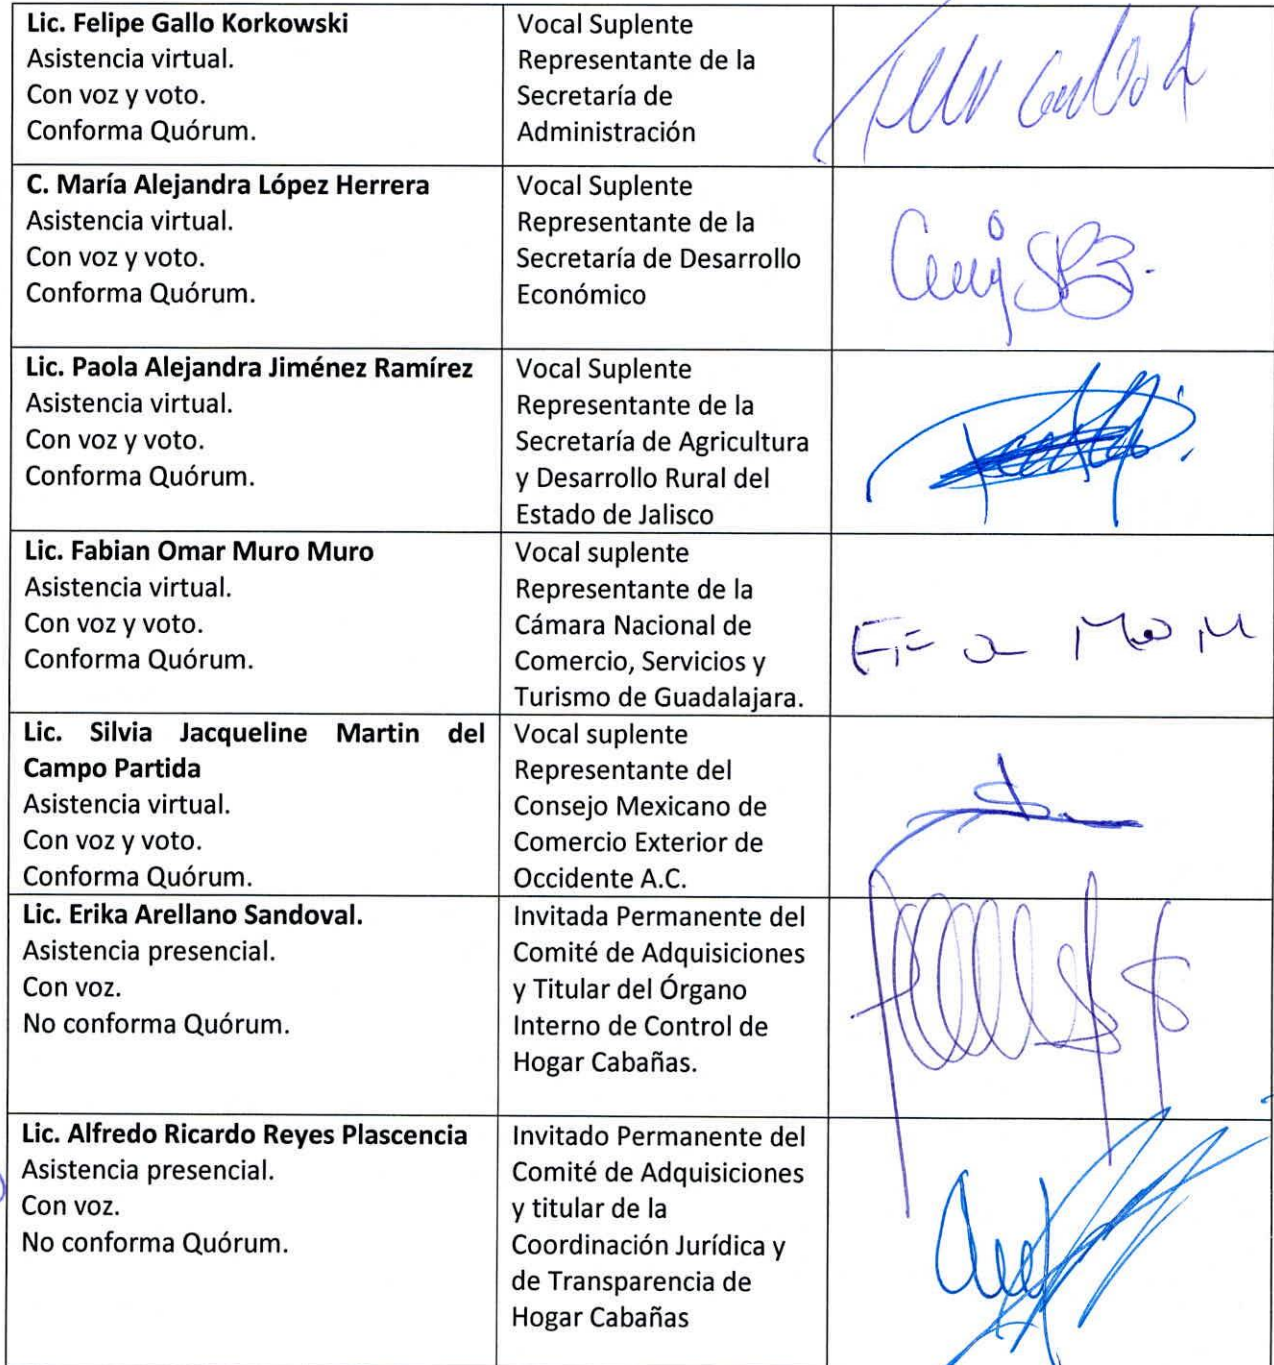 Lic. Felipe Gallo Korkowski
Asistencia virtual.
Con voz y voto.
Conforma Quórum.
Vocal Suplente
Representante de la
Secretaría de
Administración
C. María Alejandra López Herrera
Asistencia virtual.
Con voz y voto.
Conforma Quórum.
Vocal Suplente
Representante de la
Secretaría de Desarrollo
Económico
Lic. Paola Alejandra Jiménez Ramírez
Asistencia virtual.
Con voz y voto.
Conforma Quórum.
Vocal Suplente
Representante de la
Secretaría de Agricultura
y Desarrollo Rural del
Estado de Jalisco
Lic. Fabian Omar Muro Muro
Asistencia virtual.
Con voz y voto.
Conforma Quórum.
Vocal suplente
Representante de la
Cámara Nacional de
Comercio, Servicios y
Turismo de Guadalajara.
Lic. Silvia Jacqueline Martin del
Campo Partida
Asistencia virtual.
Con voz y voto.
Conforma Quórum.
Vocal suplente
Representante del
Consejo Mexicano de
Comercio Exterior de
Occidente A.C.
Lic. Erika Arellano Sandoval.
Asistencia presencial.
Con voz.
No conforma Quórum.
Invitada Permanente del
Comité de Adquisiciones
y Titular del Órgano
Interno de Control de
Hogar Cabañas.
Lic. Alfredo Ricardo Reyes Plascencia
Asistencia presencial.
Con voz.
No conforma Quórum.
Invitado Permanente del
Comité de Adquisiciones
y titular de la
Coordinación Jurídica y
de Transparencia de
Hogar Cabañas